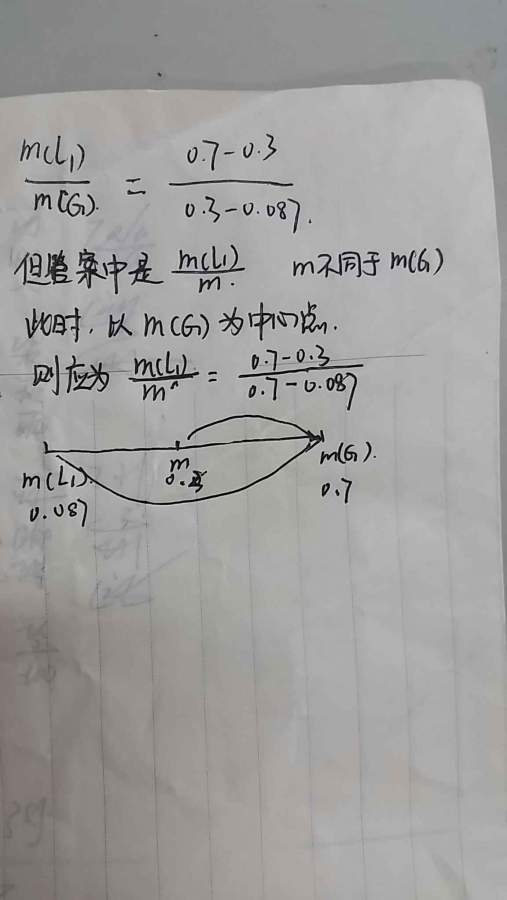 m(L₁)/m(G). = 0.7-0.3/0.3-0.087.
但答案中是 m(L₁)/m. m不同于m(G)
此时，以m(G)为中心点.
则应为 m(L₁)/m = 0.7-0.3/0.7-0.087
m(L₁). m m(G).
0.087 0.3 0.7